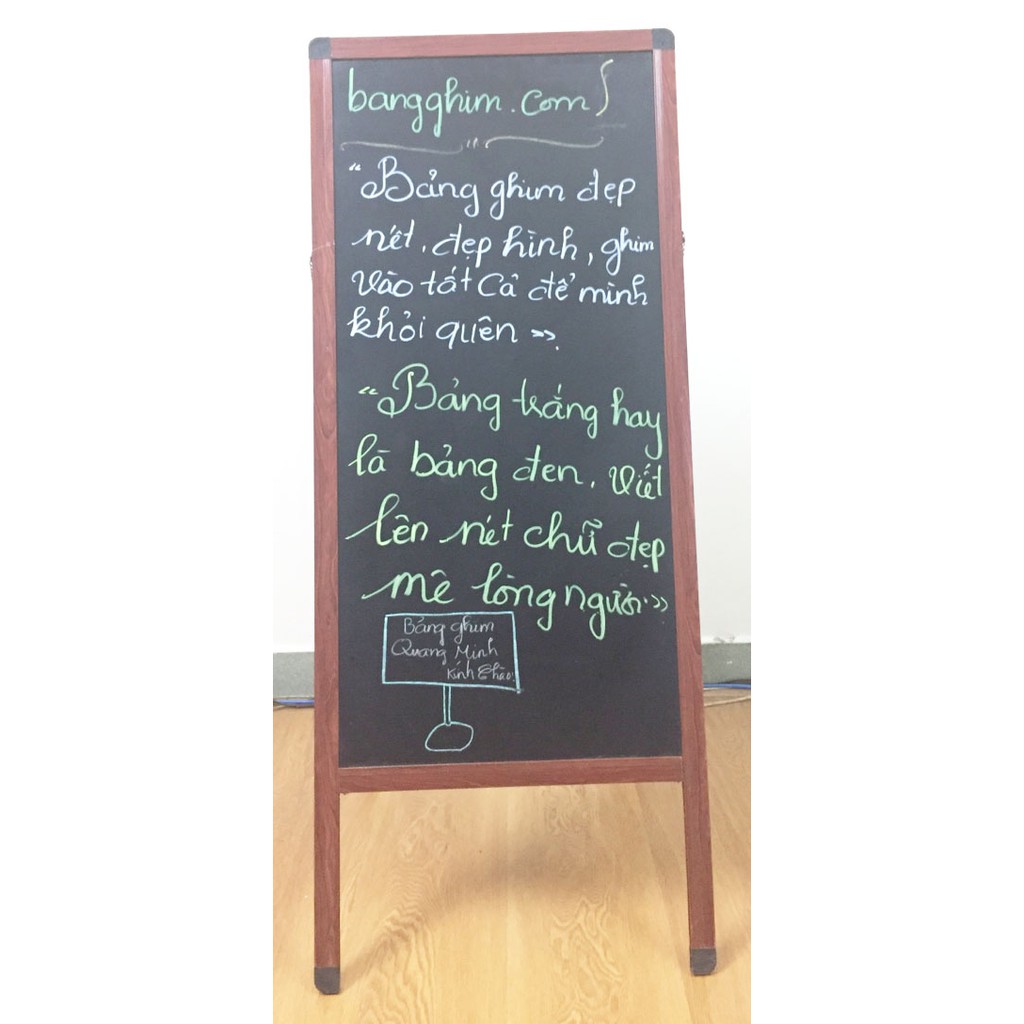 bangghim.com
"Bảng ghim đẹp
nét, đẹp hình, ghim
vào tất cả để mình
khỏi quên".
"Bảng trắng hay
là bảng đen. Viết
lên nét chữ đẹp
mê lòng người."
Bảng ghim
Quang Minh
Kính Chào!